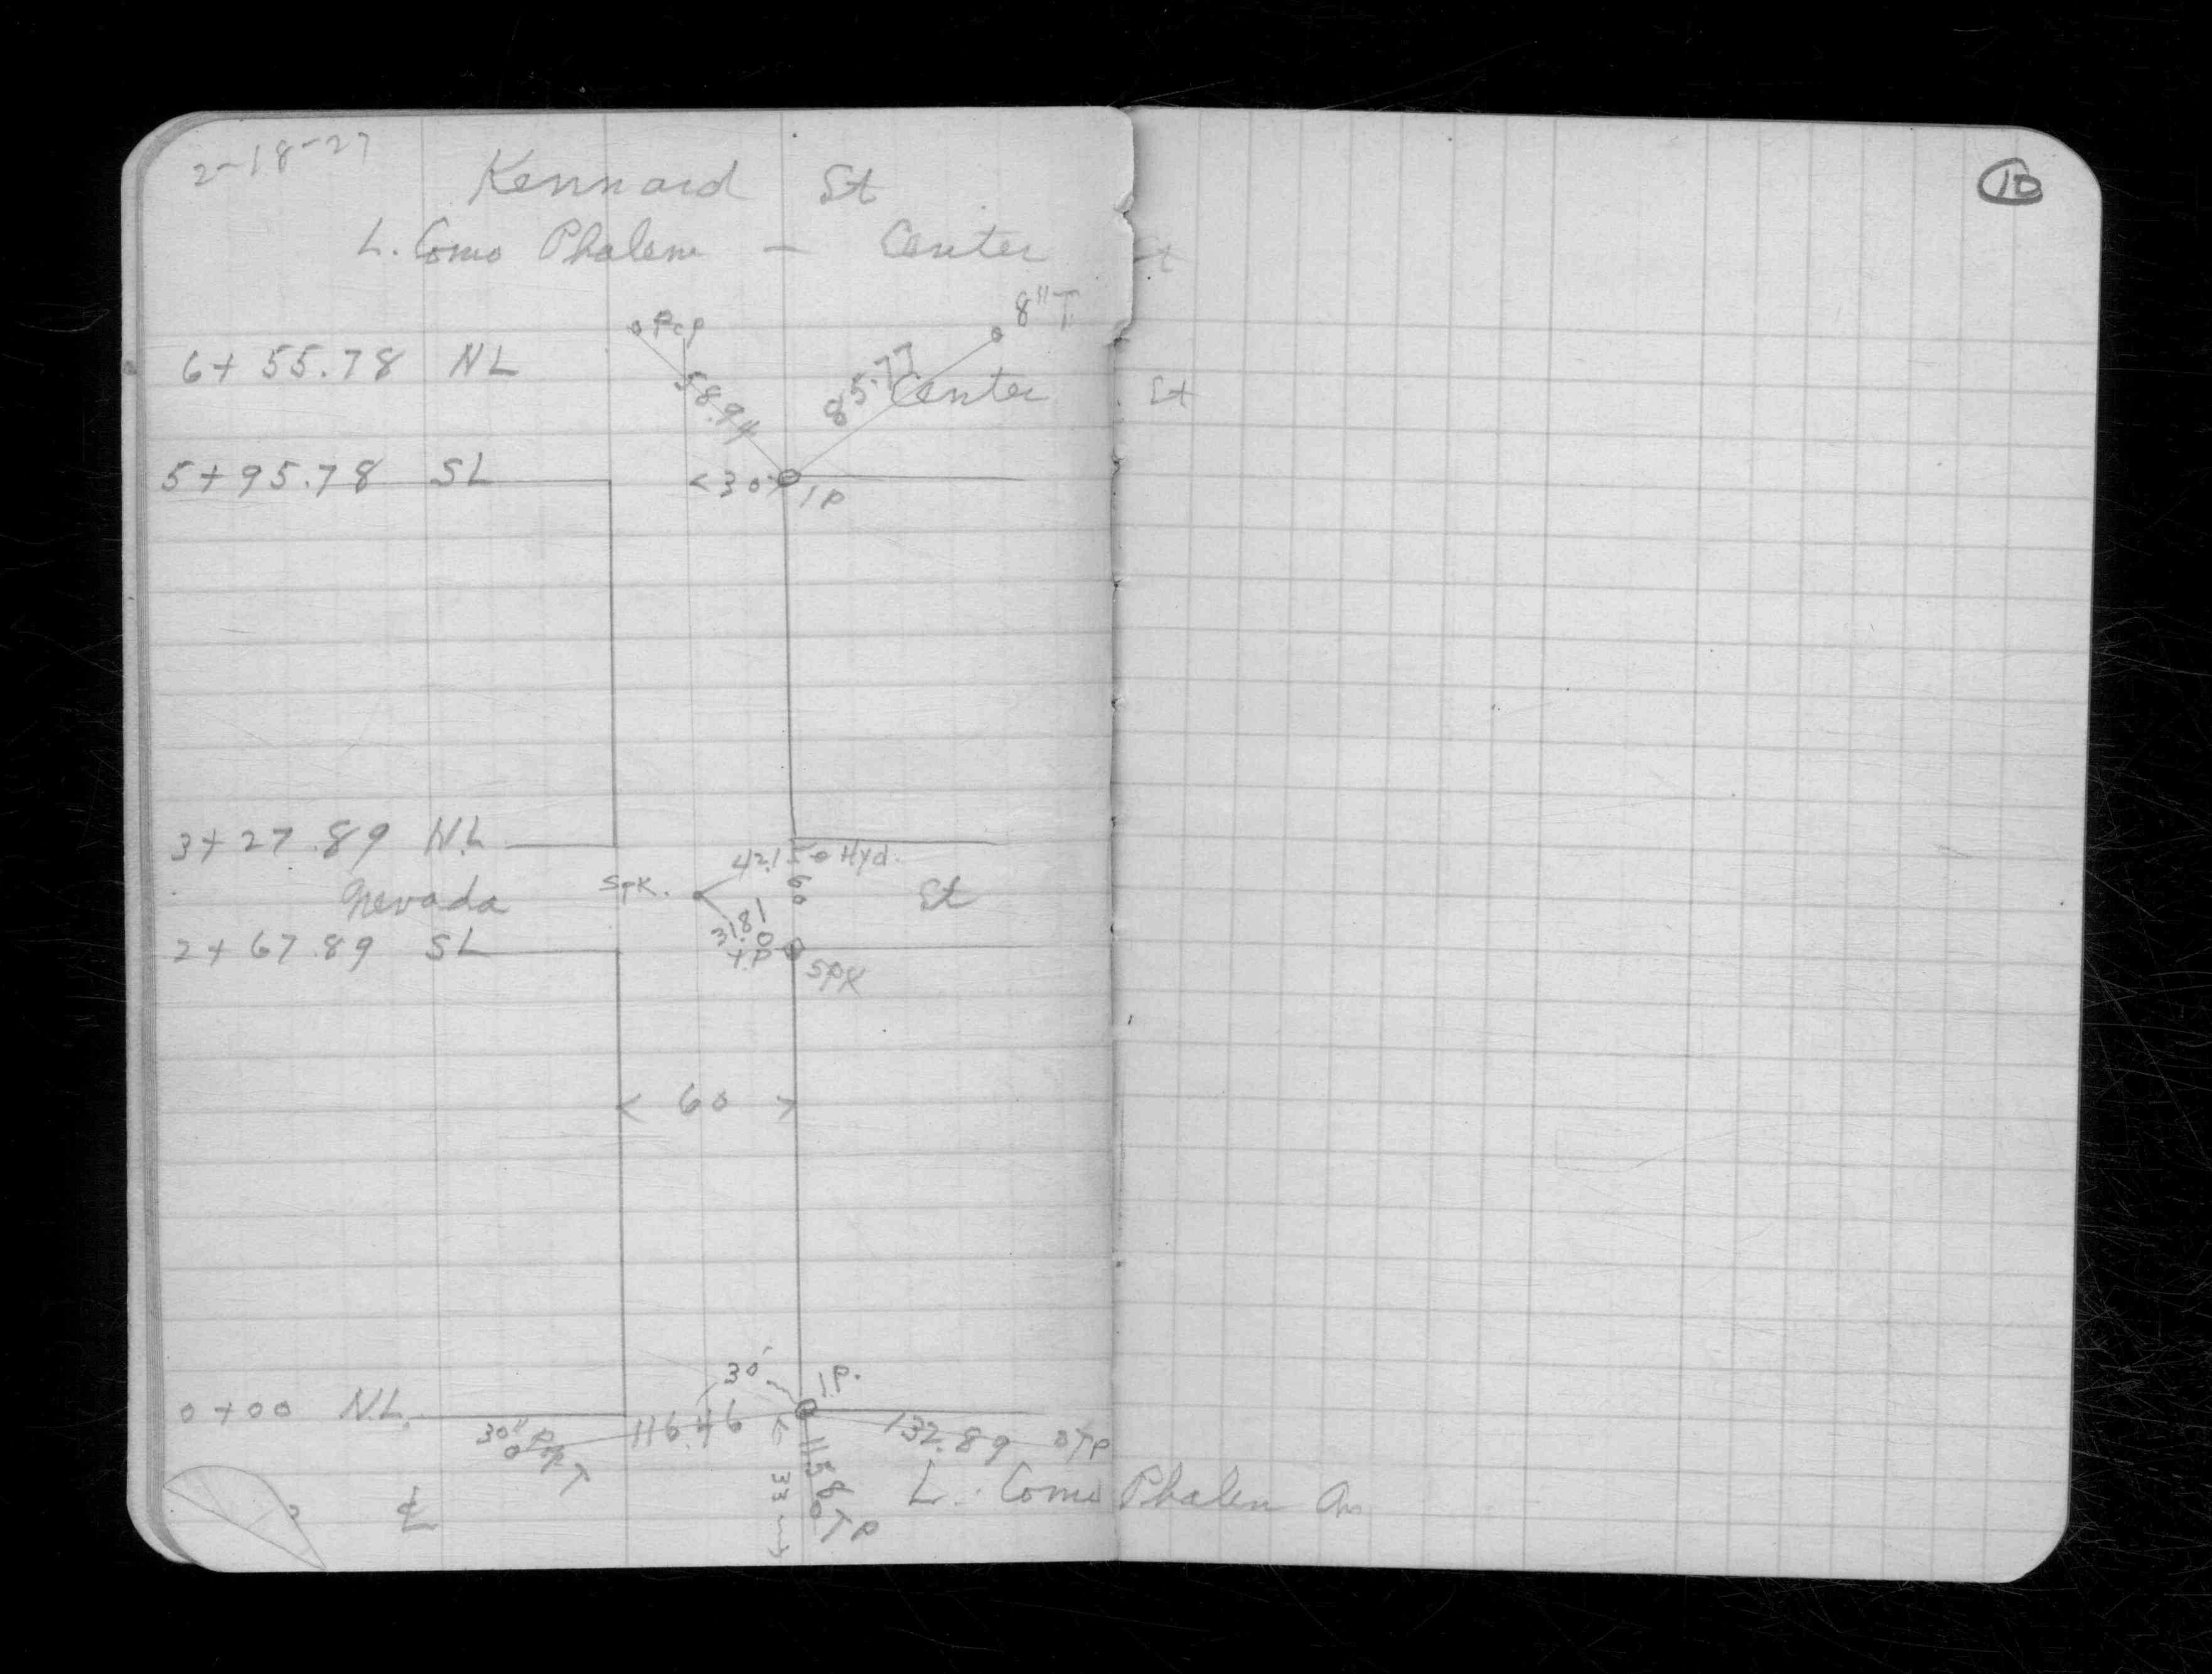 2-18-27
10
Kennard St
L. Como Phalen - Center St
8"T
6+55.78 NL
58.94
85.77
Center St
5+95.78 SL
<30>
I P
3+27.89 N.L.
42.15
Hyd.
60
Nevada St
31.81
2+67.89 SL
T.P
SPK
< 60 >
30'
I.P.
0+00 N.L.
30" Pop. T
116.46
132.89
TP
11.58
33
TP
℄
L. Como Phalen Av